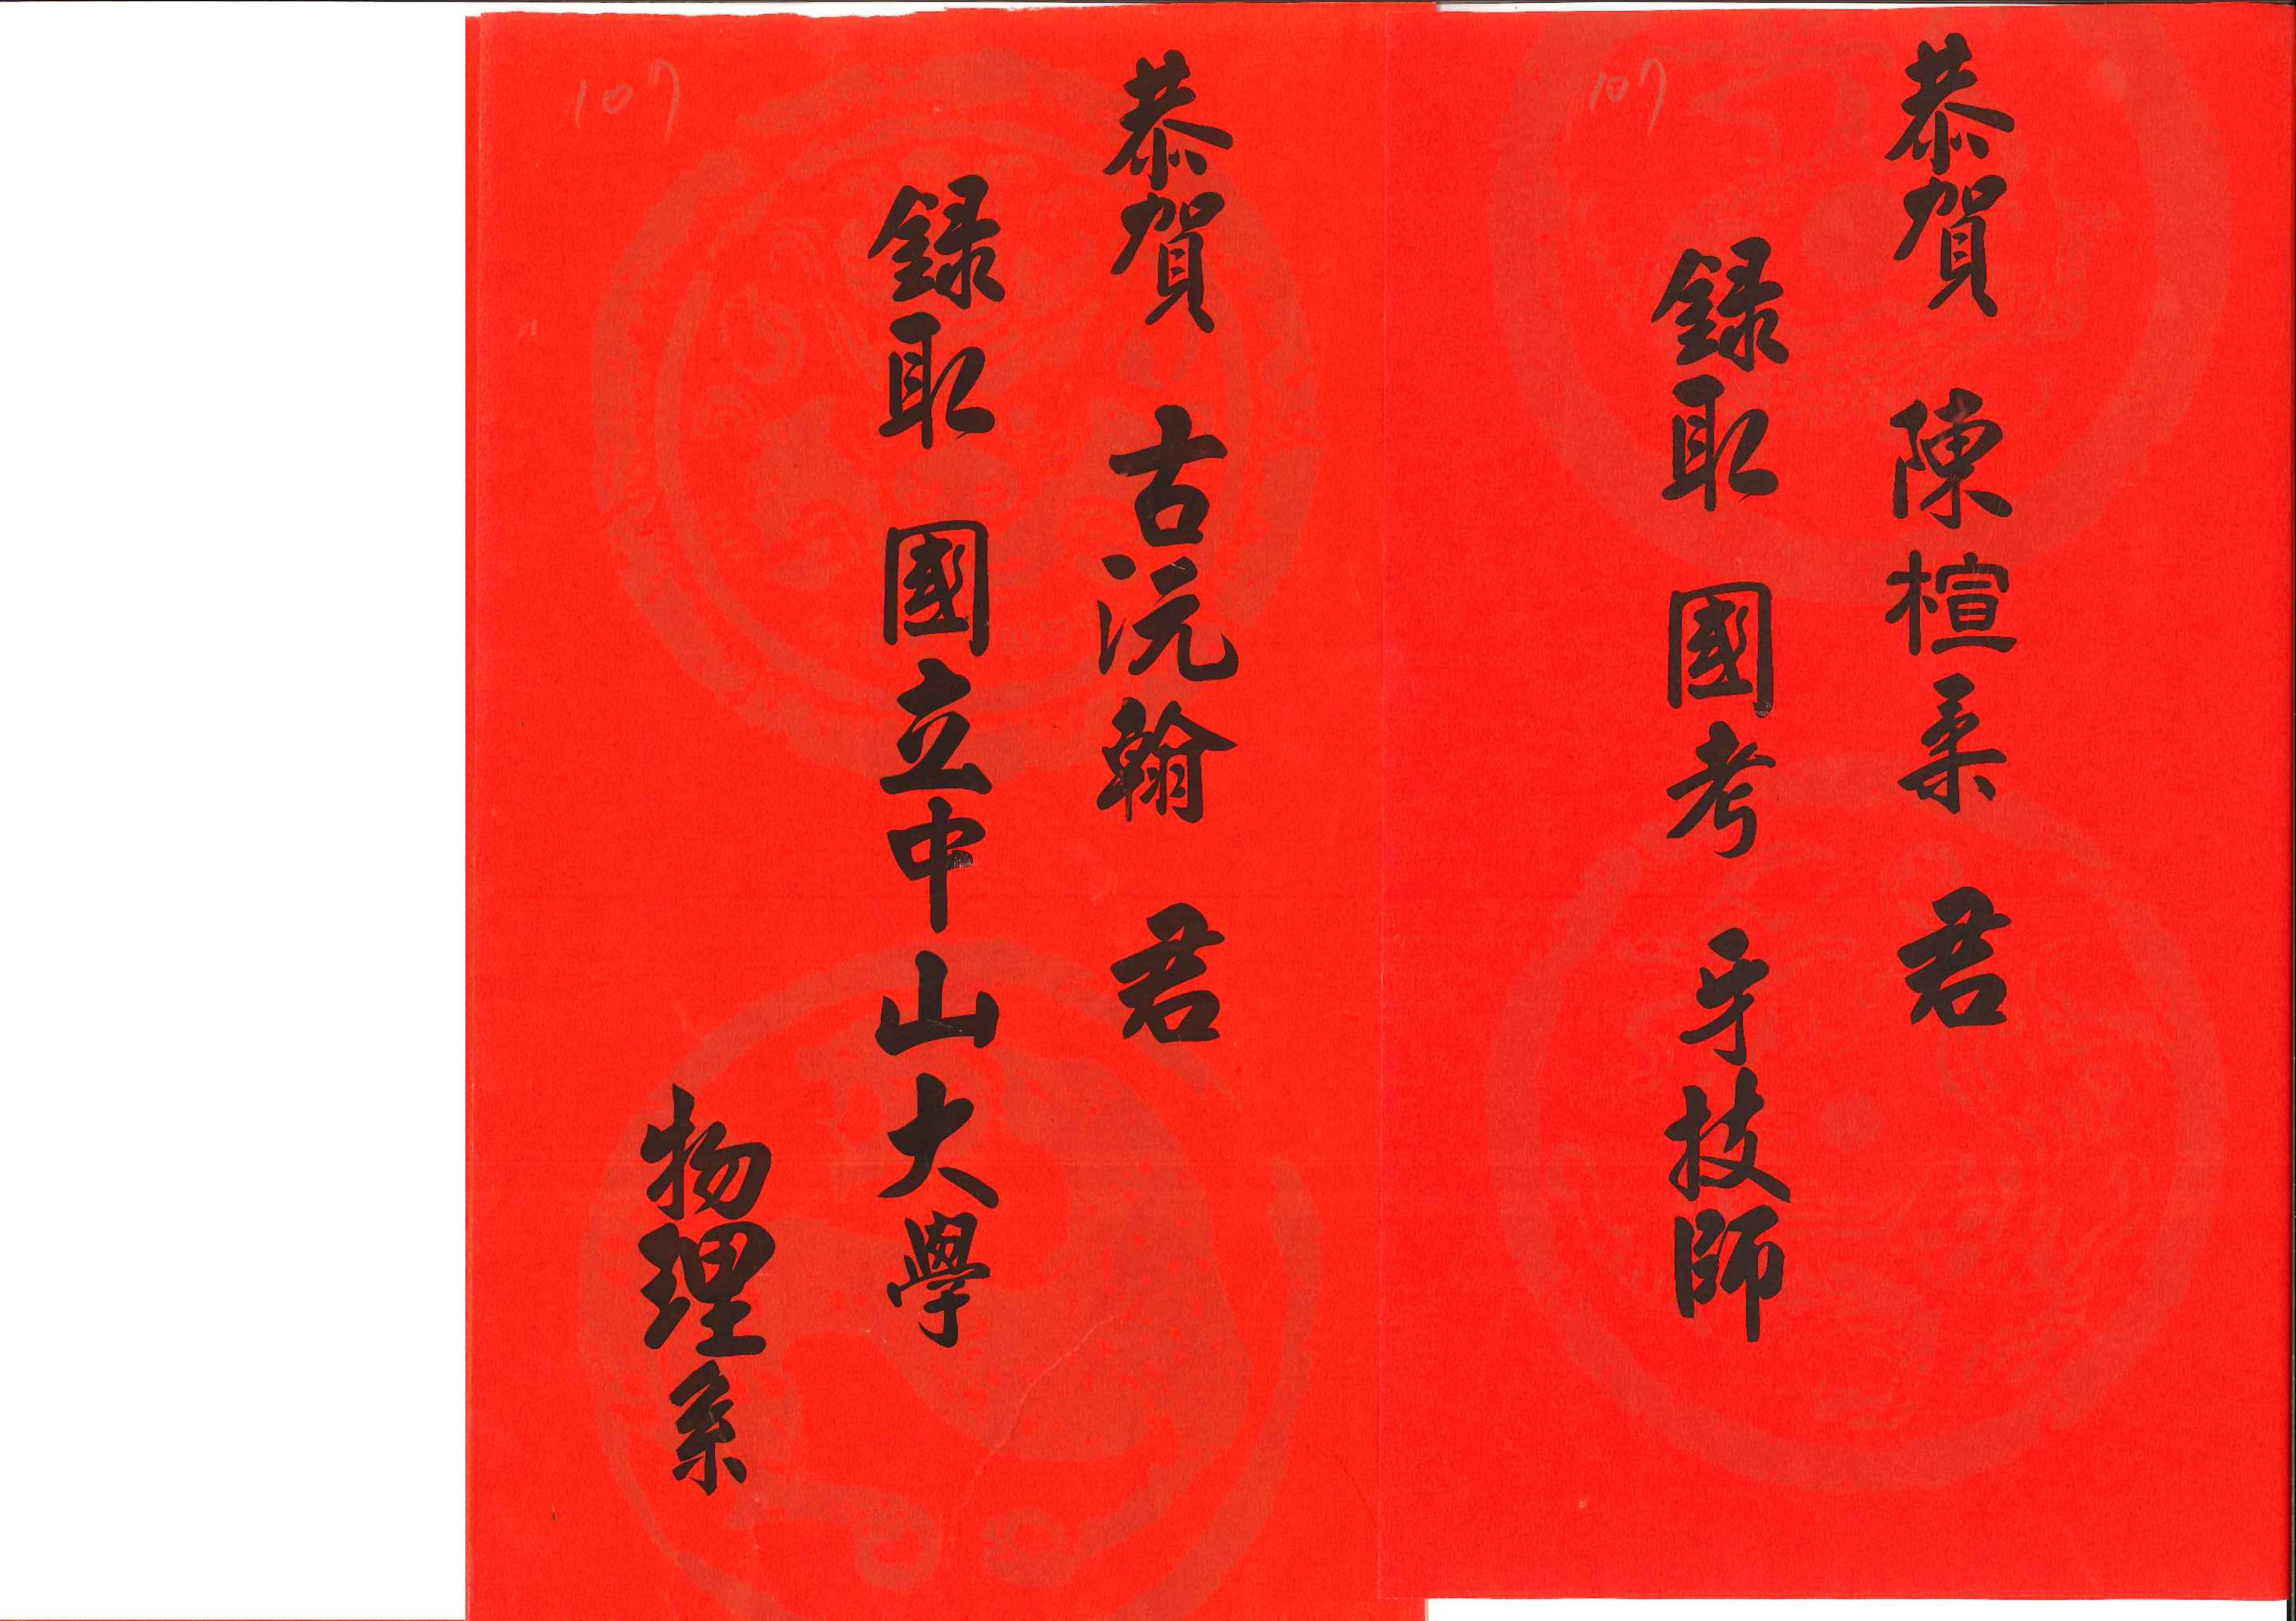 107
恭賀 陳楦柔 君
録取 國考 牙技師
107
恭賀 古沅翰 君
録取 國立中山大學
物理系